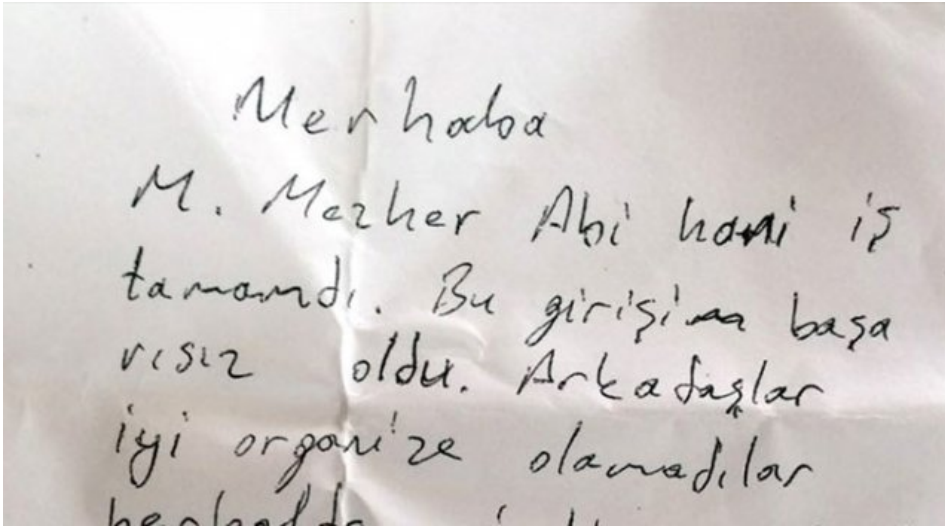 Merhaba
M. Mazher Abi hani iş
tamamdı. Bu girişim başa
rısız oldu. Arkadaşlar
iyi organize olamadılar